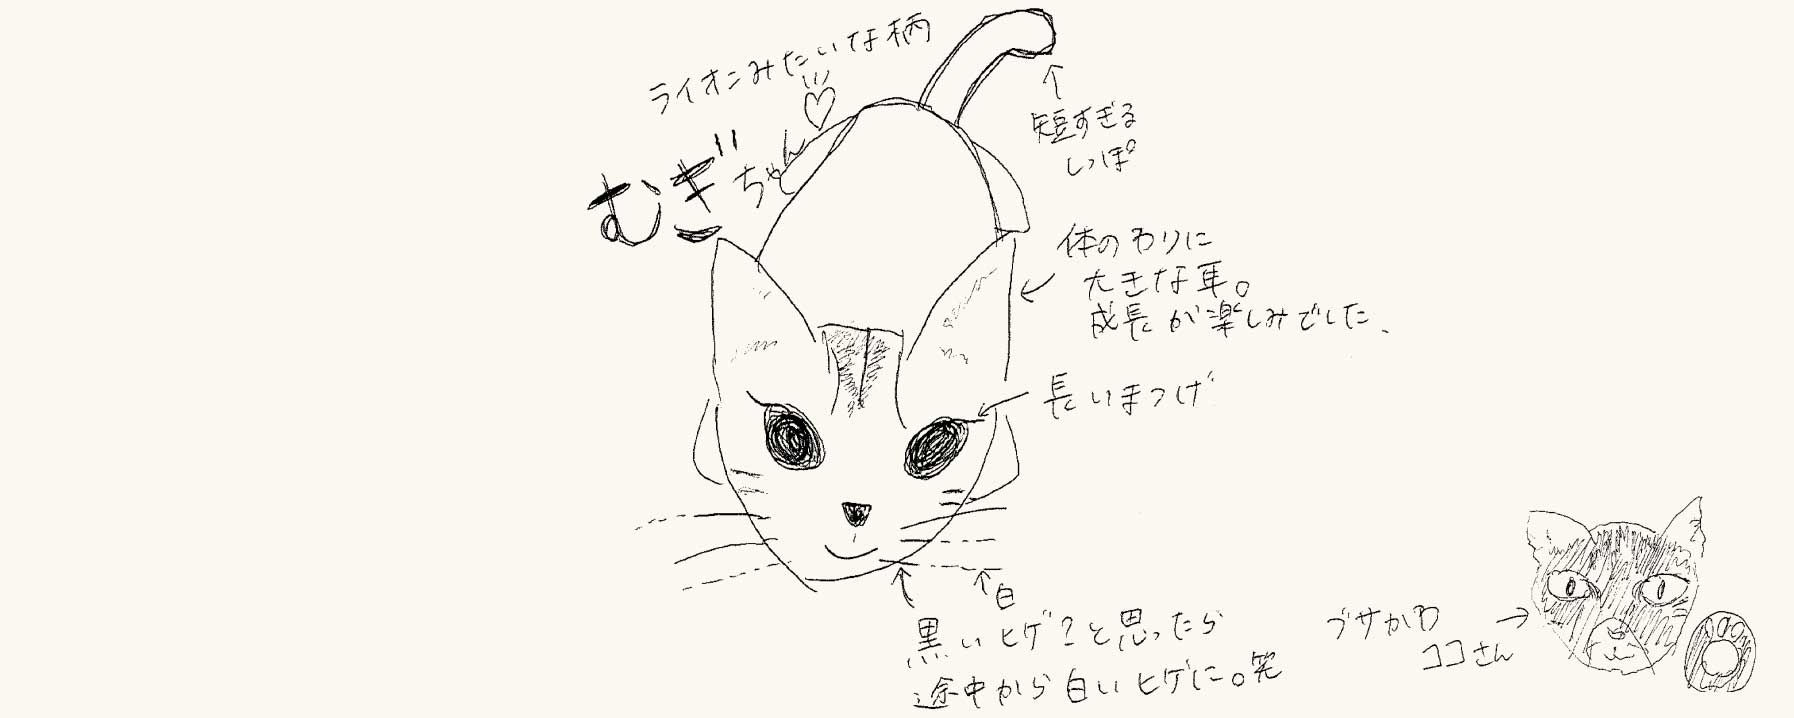 ライオンみたいな柄
むぎちゃん♡
短すぎる
しっぽ
体のわりに
大きな耳。
成長が楽しみでした、
長いまつげ
白
黒いヒゲ?と思ったら
途中から白いヒゲに。笑
ブサかわ
ココさん